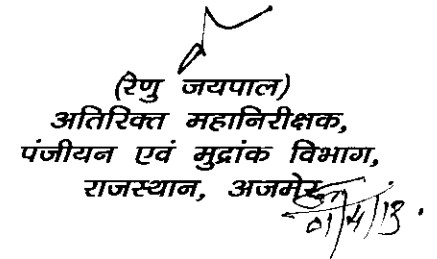 (रेणु जयपाल)
अतिरिक्त महानिरीक्षक,
पंजीयन एवं मुद्रांक विभाग,
राजस्थान, अजमेर
01/4/13.